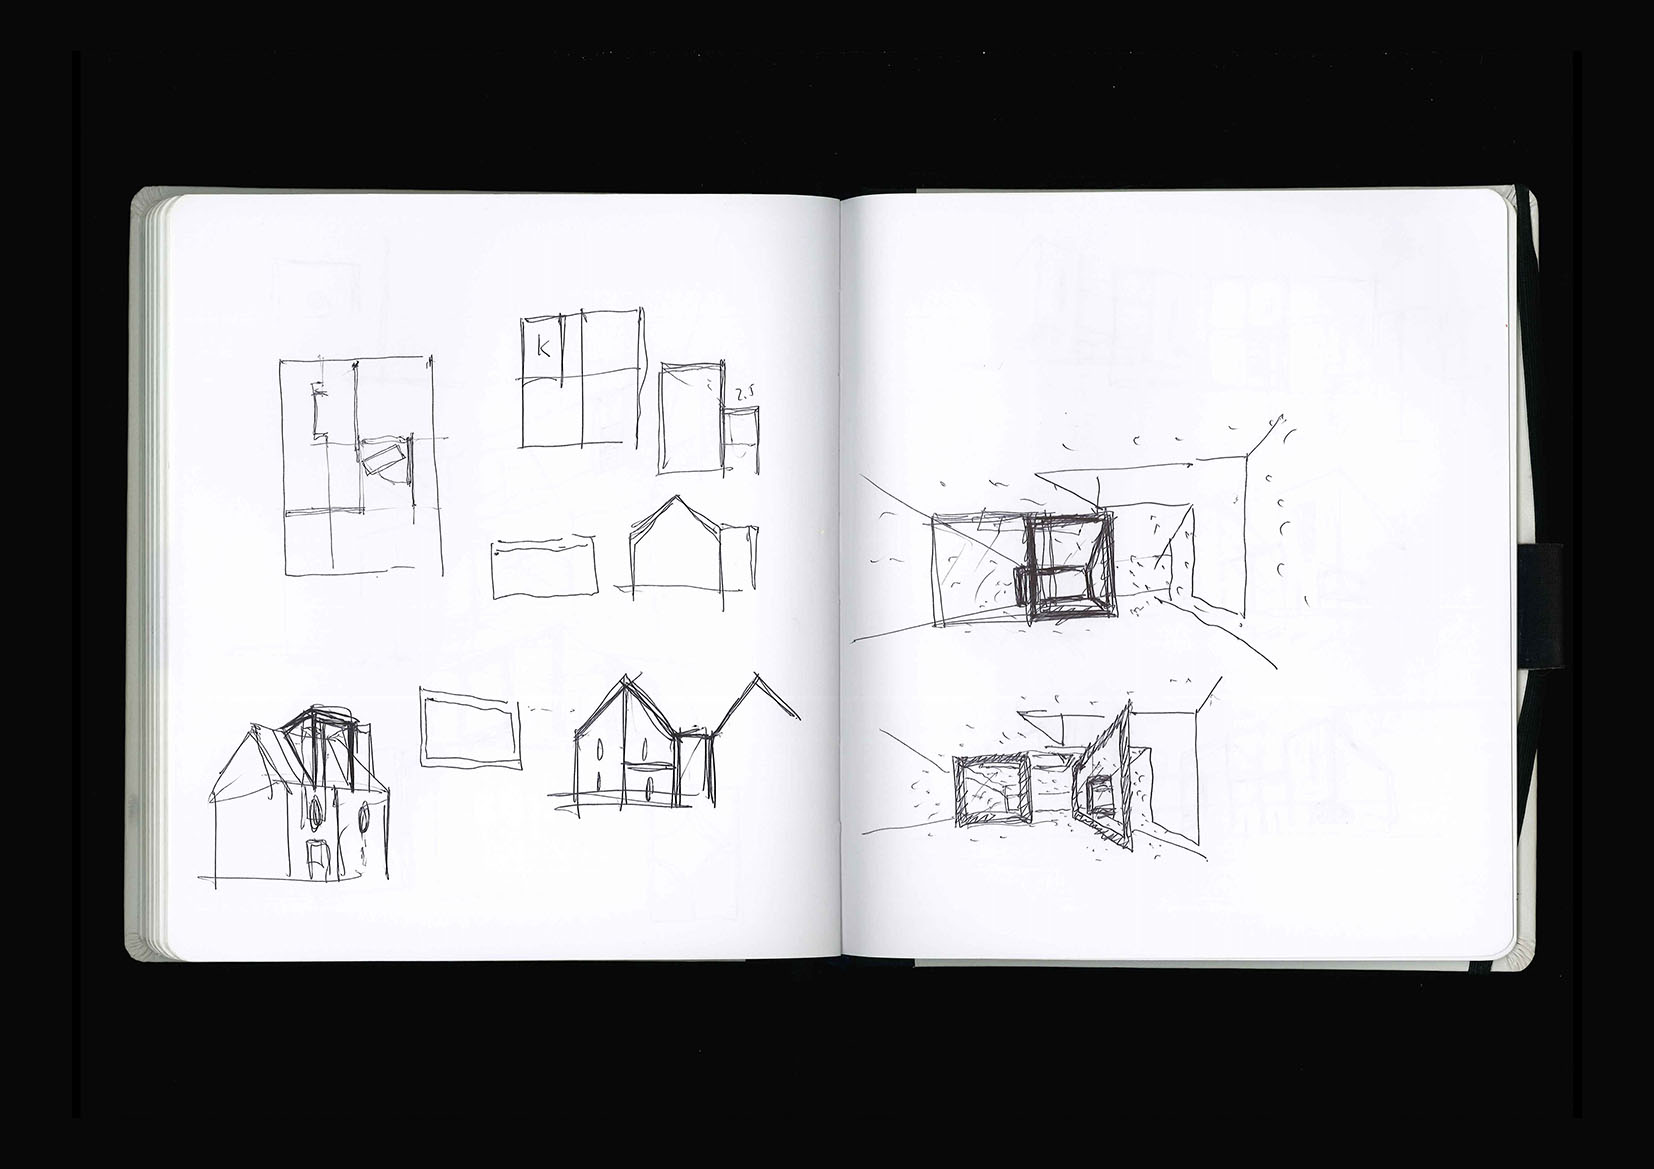 K
2.5